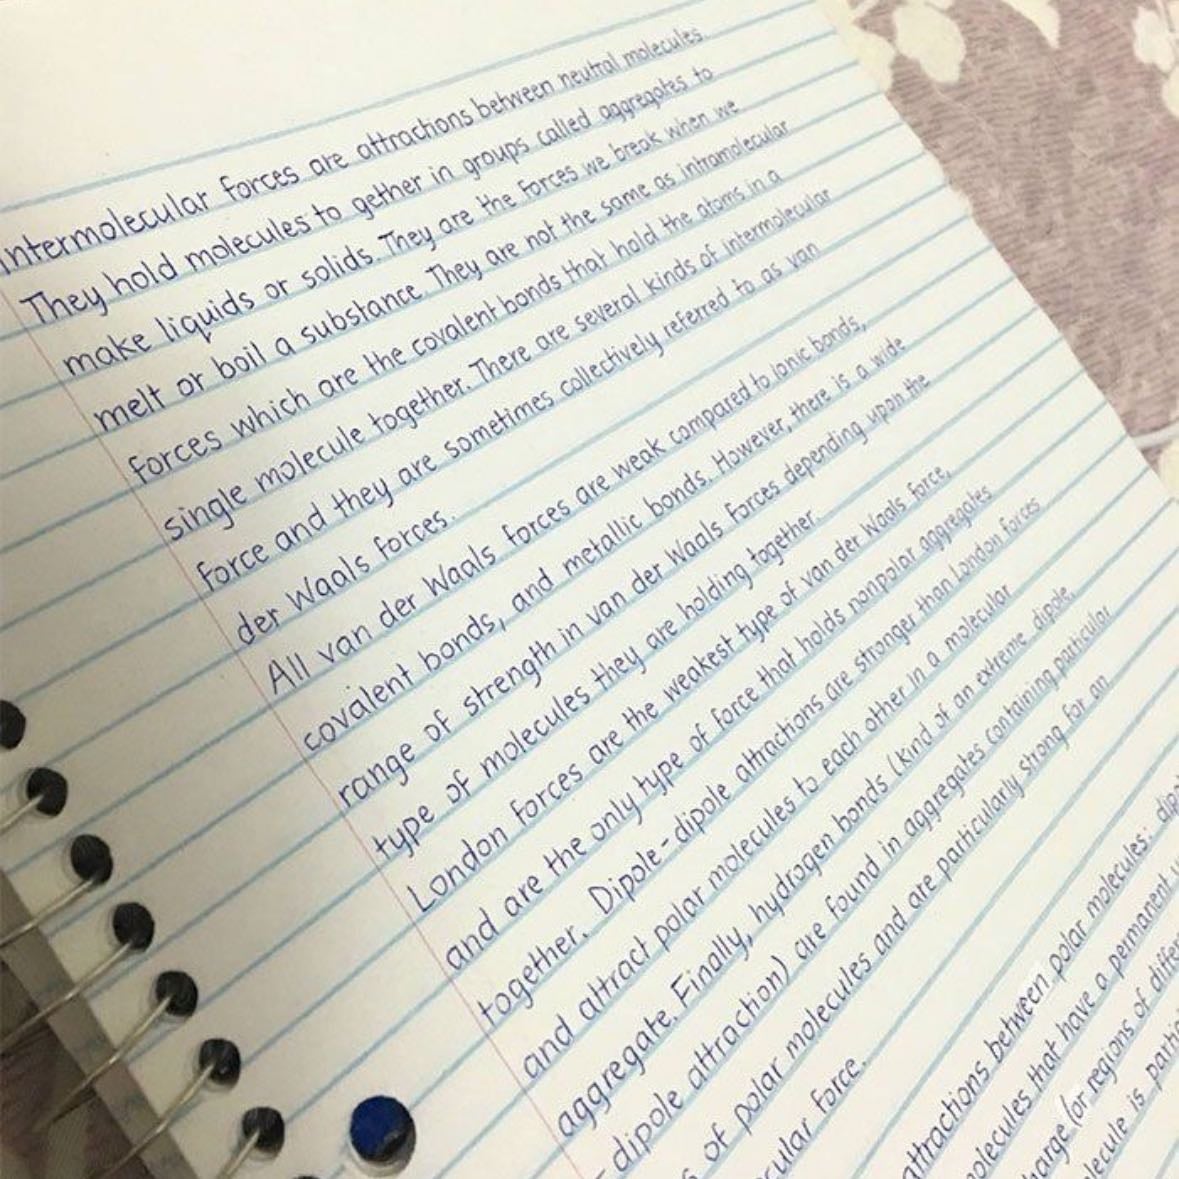 Intermolecular forces are attractions between neutral molecules.
They hold molecules to gether in groups called aggregates to
make liquids or solids. They are the forces we break when we
melt or boil a substance. They are not the same as intramolecular
forces which are the covalent bonds that hold the atoms in a
single molecule together. There are several kinds of intermolecular
force and they are sometimes collectively referred to as van
der Waals forces.
All van der Waals forces are weak compared to ionic bonds,
covalent bonds, and metallic bonds. However, there is a wide
range of strength in van der Waals forces depending upon the
type of molecules they are holding together.
London forces are the weakest type of van der Waals force,
and are the only type of force that holds nonpolar aggregates
together. Dipole-dipole attractions are stronger than London forces
and attract polar molecules to each other in a molecular
aggregate. Finally, hydrogen bonds (kind of an extreme dipole
- dipole attraction) are found in aggregates containing particular
of polar molecules and are particularly strong for an
force.
attractions between polar molecules:
that have a permanent
(or regions of
is